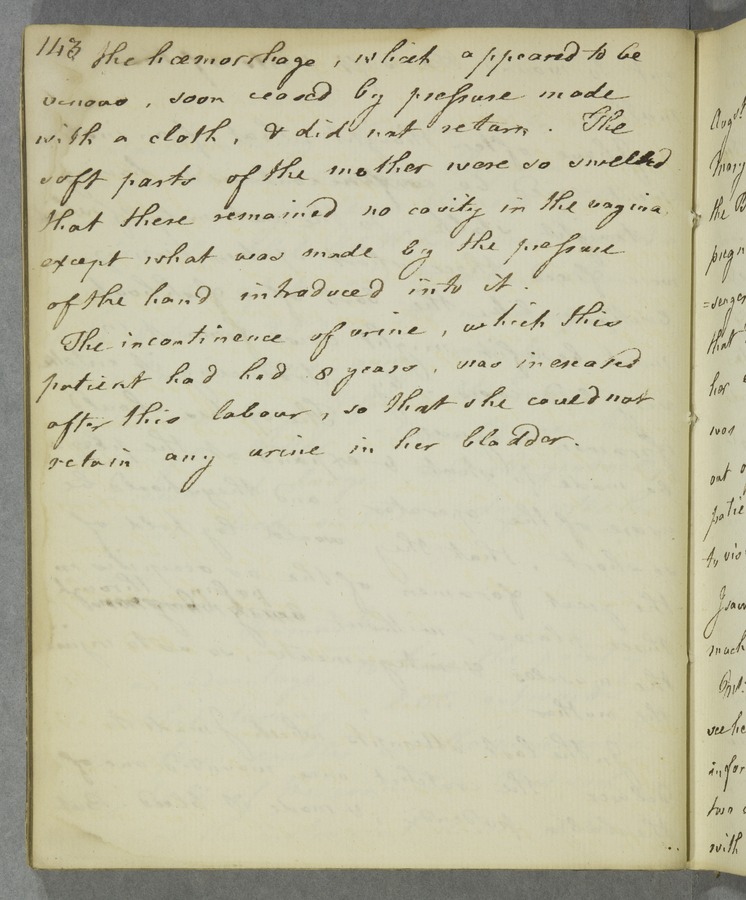 143 the hæmorrhage, which appeared to be
venous, soon ceased by pressure made
with a cloth, & did not return. The
soft parts of the mother were so swelled
that there remained no cavity in the vagina
except what was made by the pressure
of the hand introduced into it.
The incontinence of urine, which this
patient had had 8 years, was increased
after this labour, so that she could not
retain any urine in her bladder.
Augst
Mary
the B
pregn
=senger
that
her
was
out o
patie
to vis
I saw
much
see he
infor
two
with